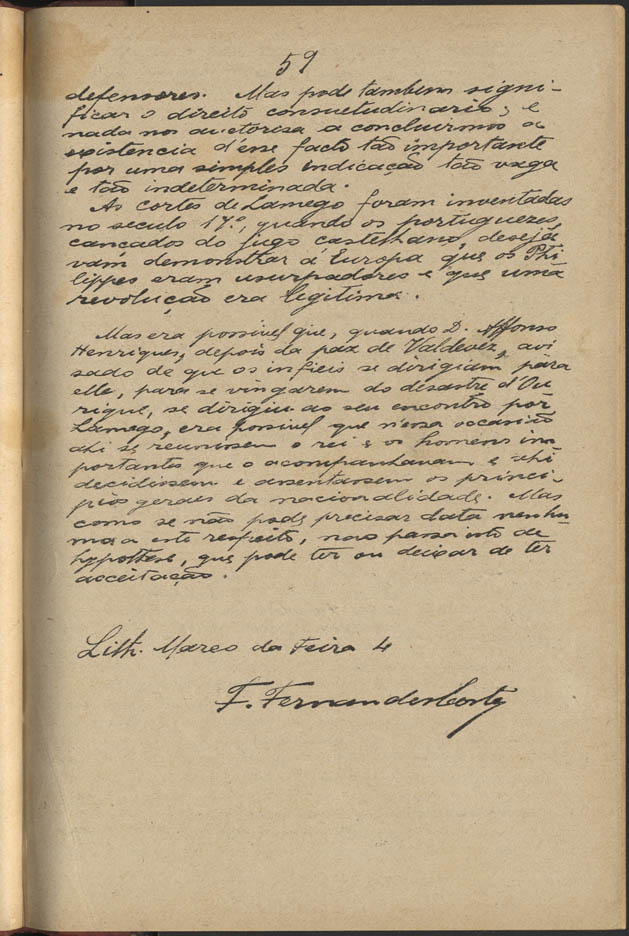 59
defensores. Mas pode tambem signi-
ficar o direito consuetudinario; e
nada nos auctorisa a concluirmos a
existencia d'esse facto tão importante
por uma simples indicação tão vaga
e tão indeterminada.
As cortes de Lamego foram inventadas
no seculo 17.º, quando os portuguezes,
cançados do jugo castelhano, deseja
vam demonstrar á Europa que os Phi-
lippes eram usurpadores e que uma
revolução era legitima.
Mas era possivel que, quando D. Affonso
Henriques, depois da paz de Valdevez, avi
sado de que os infieis se dirigiam para
elle, para se vingarem do desastre d'Ou
rique, se dirigiu ao seu encontro por
Lamego, era possivel que n'essa occasião
ahi se reunissem o rei e os homens im
portantes que o acompanhavam e ahi
decidissem e assentassem os princi-
pios geraes da nacionalidade. Mas
como se não pode precisar data nenhu
ma a este respeito, não passa isto de
hypothese, que pode ter ou deixar de ter
acceitação.
Lith. Marco da Feira 4
F. Fernandes Costa